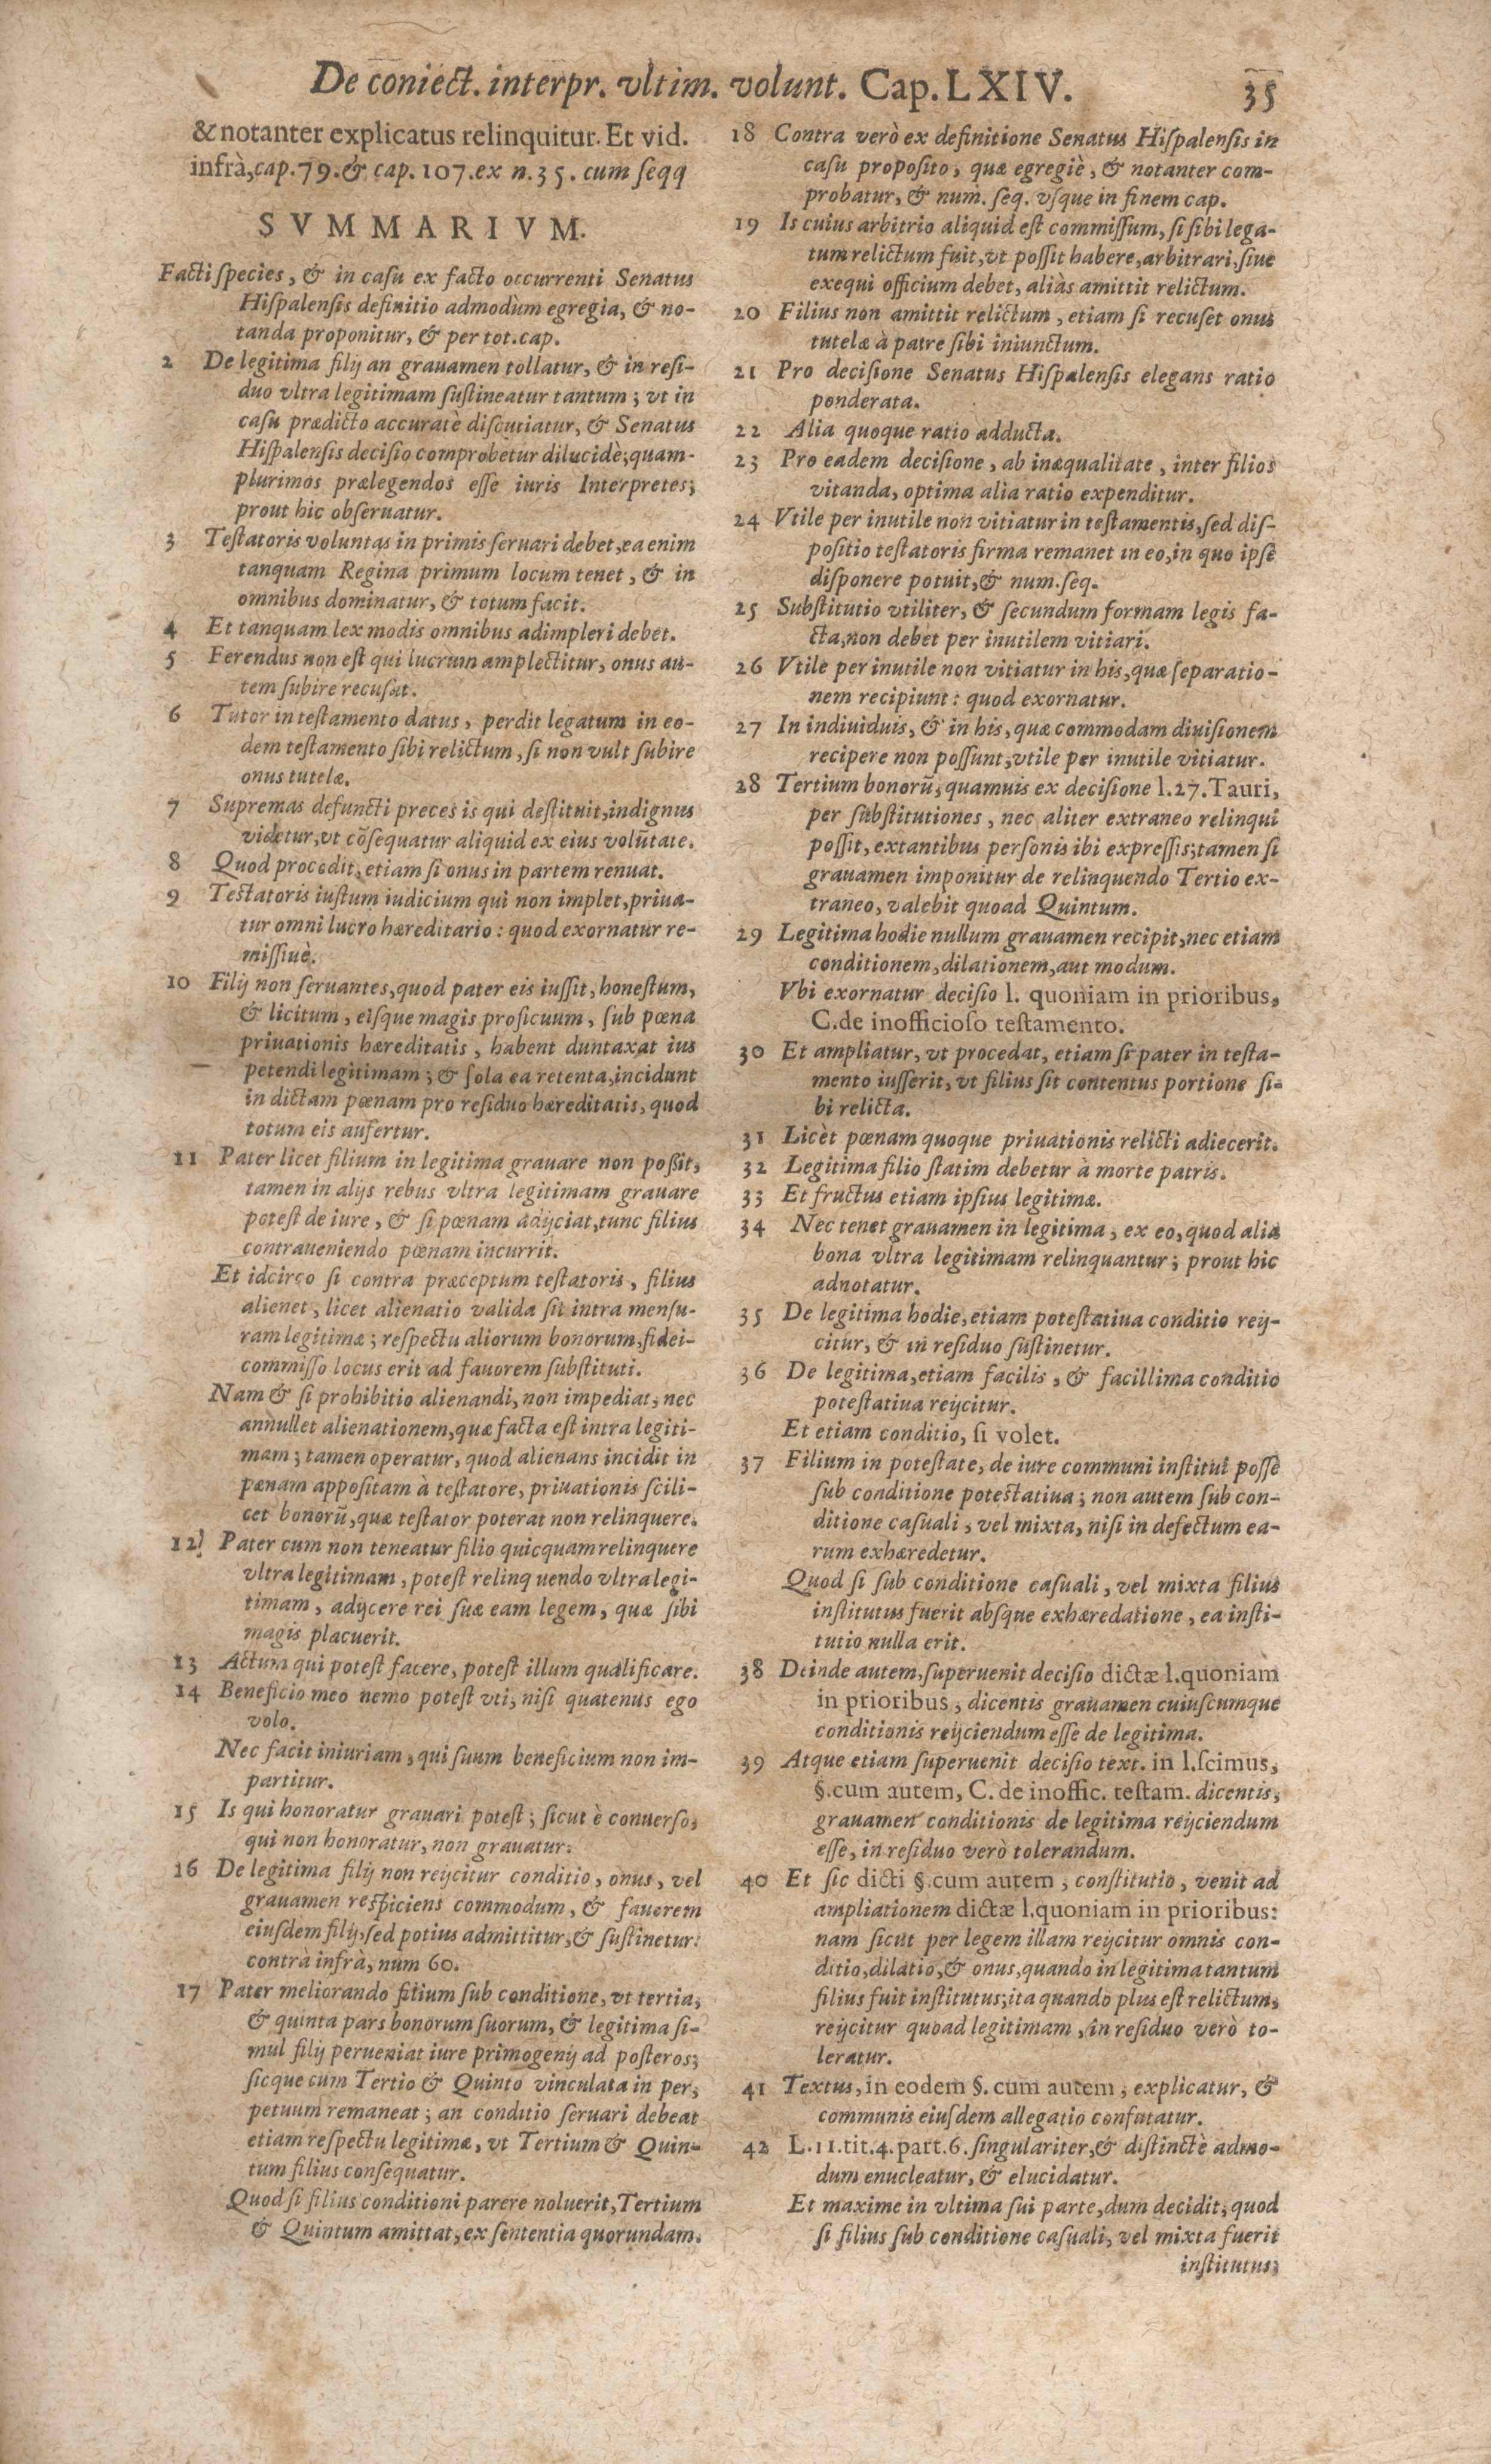 De coniect. interpr. vltim. volunt. Cap. LXIV. 35
& notanter explicatus relinquitur. Et vid.
infrà, cap. 79. & cap. 107. ex n. 35. cum seqq
SVMMARIVM.
Facti species, & in casu ex facto occurrenti Senatus
Hispalensis definitio admodùm egregia, & no-
tanda proponitur, & per tot. cap.
2 De legitima filij an grauamen tollatur, & in resi-
duo vltra legitimam sustineatur tantum; vt in
casu prædicto accuratè discutiatur, & Senatus
Hispalensis decisio comprobetur dilucidè; quam-
plurimos prælegendos esse iuris Interpretes;
prout hic obseruatur.
3 Testatoris voluntas in primis seruari debet, ea enim
tanquam Regina primum locum tenet, & in
omnibus dominatur, & totum facit.
4 Et tanquam lex modis omnibus adimpleri debet.
5 Ferendus non est qui lucrum amplectitur, onus au-
tem subire recusat.
6 Tutor in testamento datus, perdit legatum in eo-
dem testamento sibi relictum, si non vult subire
onus tutelæ.
7 Supremas defuncti preces is qui destituit, indignus
videtur, vt cōsequatur aliquid ex eius volūtate.
8 Quod procedit, etiam si onus in partem renuat.
9 Testatoris iustum iudicium qui non implet, priua-
tur omni lucro hæreditario: quod exornatur re-
missiuè.
10 Filij non seruantes, quod pater eis iussit, honestum,
& licitum, eisque magis proficuum, sub pœna
priuationis hæreditatis, habent duntaxat ius
petendi legitimam; & sola ea retenta, incidunt
in dictam pœnam pro residuo hæreditatis, quod
totum eis aufertur.
11 Pater licet filium in legitima grauare non possit,
tamen in alijs rebus vltra legitimam grauare
potest de iure, & si pœnam adijciat, tunc filius
contraueniendo pœnam incurrit.
Et idcirco si contra præceptum testatoris, filius
alienet, licet alienatio valida sit intra mensu-
ram legitimæ; respectu aliorum bonorum, fidei-
commisso locus erit ad fauorem substituti.
Nam & si prohibitio alienandi, non impediat, nec
annullet alienationem, quæ facta est intra legiti-
mam; tamen operatur, quod alienans incidit in
pœnam appositam à testatore, priuationis scili-
cet bonorū, quæ testator poterat non relinquere.
12 Pater cum non teneatur filio quicquam relinquere
vltra legitimam, potest relinquendo vltra legi-
timam, adijcere rei suæ eam legem, quæ sibi
magis placuerit.
13 Actum qui potest facere, potest illum qualificare.
14 Beneficio meo nemo potest vti, nisi quatenus ego
volo.
Nec facit iniuriam, qui suum beneficium non im-
partitur.
15 Is qui honoratur grauari potest; sicut è conuerso,
qui non honoratur, non grauatur.
16 De legitima filij non reijcitur conditio, onus, vel
grauamen respiciens commodum, & fauorem
eiusdem filij, sed potius admittitur, & sustinetur:
contrà infrà, num 60.
17 Pater meliorando filium sub conditione, vt tertia,
& quinta pars bonorum suorum, & legitima si-
mul filij perueniat iure primogenij ad posteros;
sicque cum Tertio & Quinto vinculata in per,
petuum remaneat; an conditio seruari debeat
etiam respectu legitimæ, vt Tertium & Quin-
tum filius consequatur.
Quod si filius conditioni parere noluerit, Tertium
& Quintum amittat, ex sententia quorundam.
18 Contra verò ex definitione Senatus Hispalensis in
casu proposito, quæ egregiè, & notanter com-
probatur, & num. seq. vsque in finem cap.
19 Is cuius arbitrio aliquid est commissum, si sibi lega-
tum relictum fuit, vt possit habere, arbitrari, siue
exequi officium debet, aliàs amittit relictum.
20 Filius non amittit relictum, etiam si recuset onus
tutelæ à patre sibi iniunctum.
21 Pro decisione Senatus Hispalensis elegans ratio
ponderata.
22 Alia quoque ratio adducta.
23 Pro eadem decisione, ab inæqualitate, inter filios
vitanda, optima alia ratio expenditur.
24 Vtile per inutile non vitiatur in testamentis, sed dis-
positio testatoris firma remanet in eo, in quo ipse
disponere potuit, & num. seq.
25 Substitutio vtiliter, & secundum formam legis fa-
cta, non debet per inutilem vitiari.
26 Vtile per inutile non vitiatur in his, quæ separatio-
nem recipiunt: quod exornatur.
27 In indiuiduis, & in his, quæ commodam diuisionem
recipere non possunt, vtile per inutile vitiatur.
28 Tertium bonorū, quamuis ex decisione l. 27. Tauri,
per substitutiones, nec aliter extraneo relinqui
possit, extantibus personis ibi expressis; tamen si
grauamen imponitur de relinquendo Tertio ex-
traneo, valebit quoad Quintum.
29 Legitima hodie nullum grauamen recipit, nec etiam
conditionem, dilationem, aut modum.
Vbi exornatur decisio l. quoniam in prioribus,
C. de inofficioso testamento.
30 Et ampliatur, vt procedat, etiam si pater in testa-
mento iusserit, vt filius sit contentus portione si-
bi relicta.
31 Licèt pœnam quoque priuationis relicti adiecerit.
32 Legitima filio statim debetur à morte patris.
33 Et fructus etiam ipsius legitimæ.
34 Nec tenet grauamen in legitima, ex eo, quod alia
bona vltra legitimam relinquantur; prout hic
adnotatur.
35 De legitima hodie, etiam potestatiua conditio reij-
citur, & in residuo sustinetur.
36 De legitima, etiam facilis, & facillima conditio
potestatiua reijcitur.
Et etiam conditio, si volet.
37 Filium in potestate, de iure communi institui posse
sub conditione potestatiua; non autem sub con-
ditione casuali, vel mixta, nisi in defectum ea-
rum exhæredetur.
Quod si sub conditione casuali, vel mixta filius
institutus fuerit absque exhæredatione, ea insti-
tutio nulla erit.
38 Deinde autem, superuenit decisio dictæ l. quoniam
in prioribus, dicentis grauamen cuiuscumque
conditionis reijciendum esse de legitima.
39 Atque etiam superuenit decisio text. in l. scimus,
§. cum autem, C. de inoffic. testam. dicentis,
grauamen conditionis de legitima reijciendum
esse, in residuo verò tolerandum.
40 Et sic dicti §. cum autem, constitutio, venit ad
ampliationem dictæ l. quoniam in prioribus:
nam sicut per legem illam reijcitur omnis con-
ditio, dilatio, & onus, quando in legitima tantum
filius fuit institutus; ita quando plus est relictum,
reijcitur quoad legitimam, in residuo verò to-
leratur.
41 Textus, in eodem §. cum autem, explicatur, &
communis eiusdem allegatio confutatur.
42 L. 11. tit. 4. part. 6. singulariter, & distinctè admo-
dum enucleatur, & elucidatur.
Et maxime in vltima sui parte, dum decidit, quod
si filius sub conditione casuali, vel mixta fuerit
institutus;